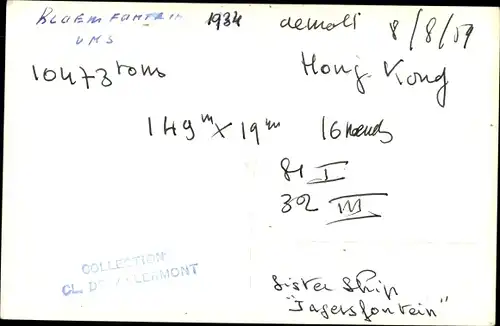 BLOEMFONTEIN 1934 demoli 8/8/59
VNS
10473 tons Hong-Kong
149m x 19m 16 nœuds
81 I
32 III
COLLECTION
CL. DE CLERMONT
Sister Ship
"Jagersfontein"